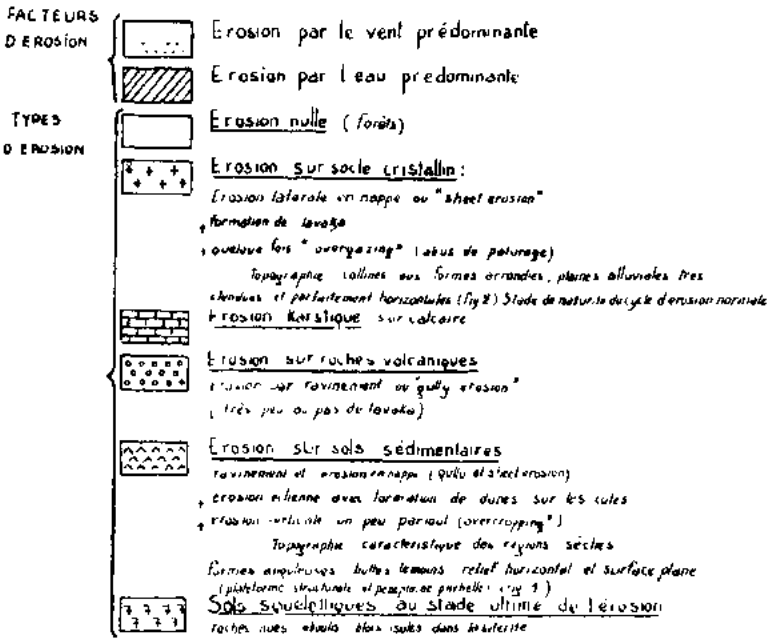 FACTEURS
D'EROSION
Erosion par le vent prédominante
Erosion par l'eau predominante
TYPES
D'EROSION
Erosion nulle (forêts)
Erosion sur socle cristallin :
Erosion laterale en nappe ou "sheet erosion"
+ formation de lavaka
+ quelque fois "overgazing" (abus de paturage)
Topographie collines aux formes arrondies, plaines alluviales très
étendues et parfaitement horizontales (fig 2) Stade de maturité du cycle d'erosion normale
Erosion Karstique sur calcaire
Erosion sur roches volcaniques
erosion par ravinement ou "gully erosion"
(très peu ou pas de lavaka)
Erosion sur sols sédimentaires
ravinement et erosion en nappe (gully et sheet erosion)
+ érosion éolienne avec formation de dunes sur les cotes
+ erosion verticale un peu partout (overcropping")
Topographie caractéristique des régions sèches
Formes anguleuses buttes temoins relief horizontal et surface plane
(plateforme structurale et partielle (fig 1)
Sols squelettiques au stade ultime de l'érosion
roches nues eboulis blocs isolés dans